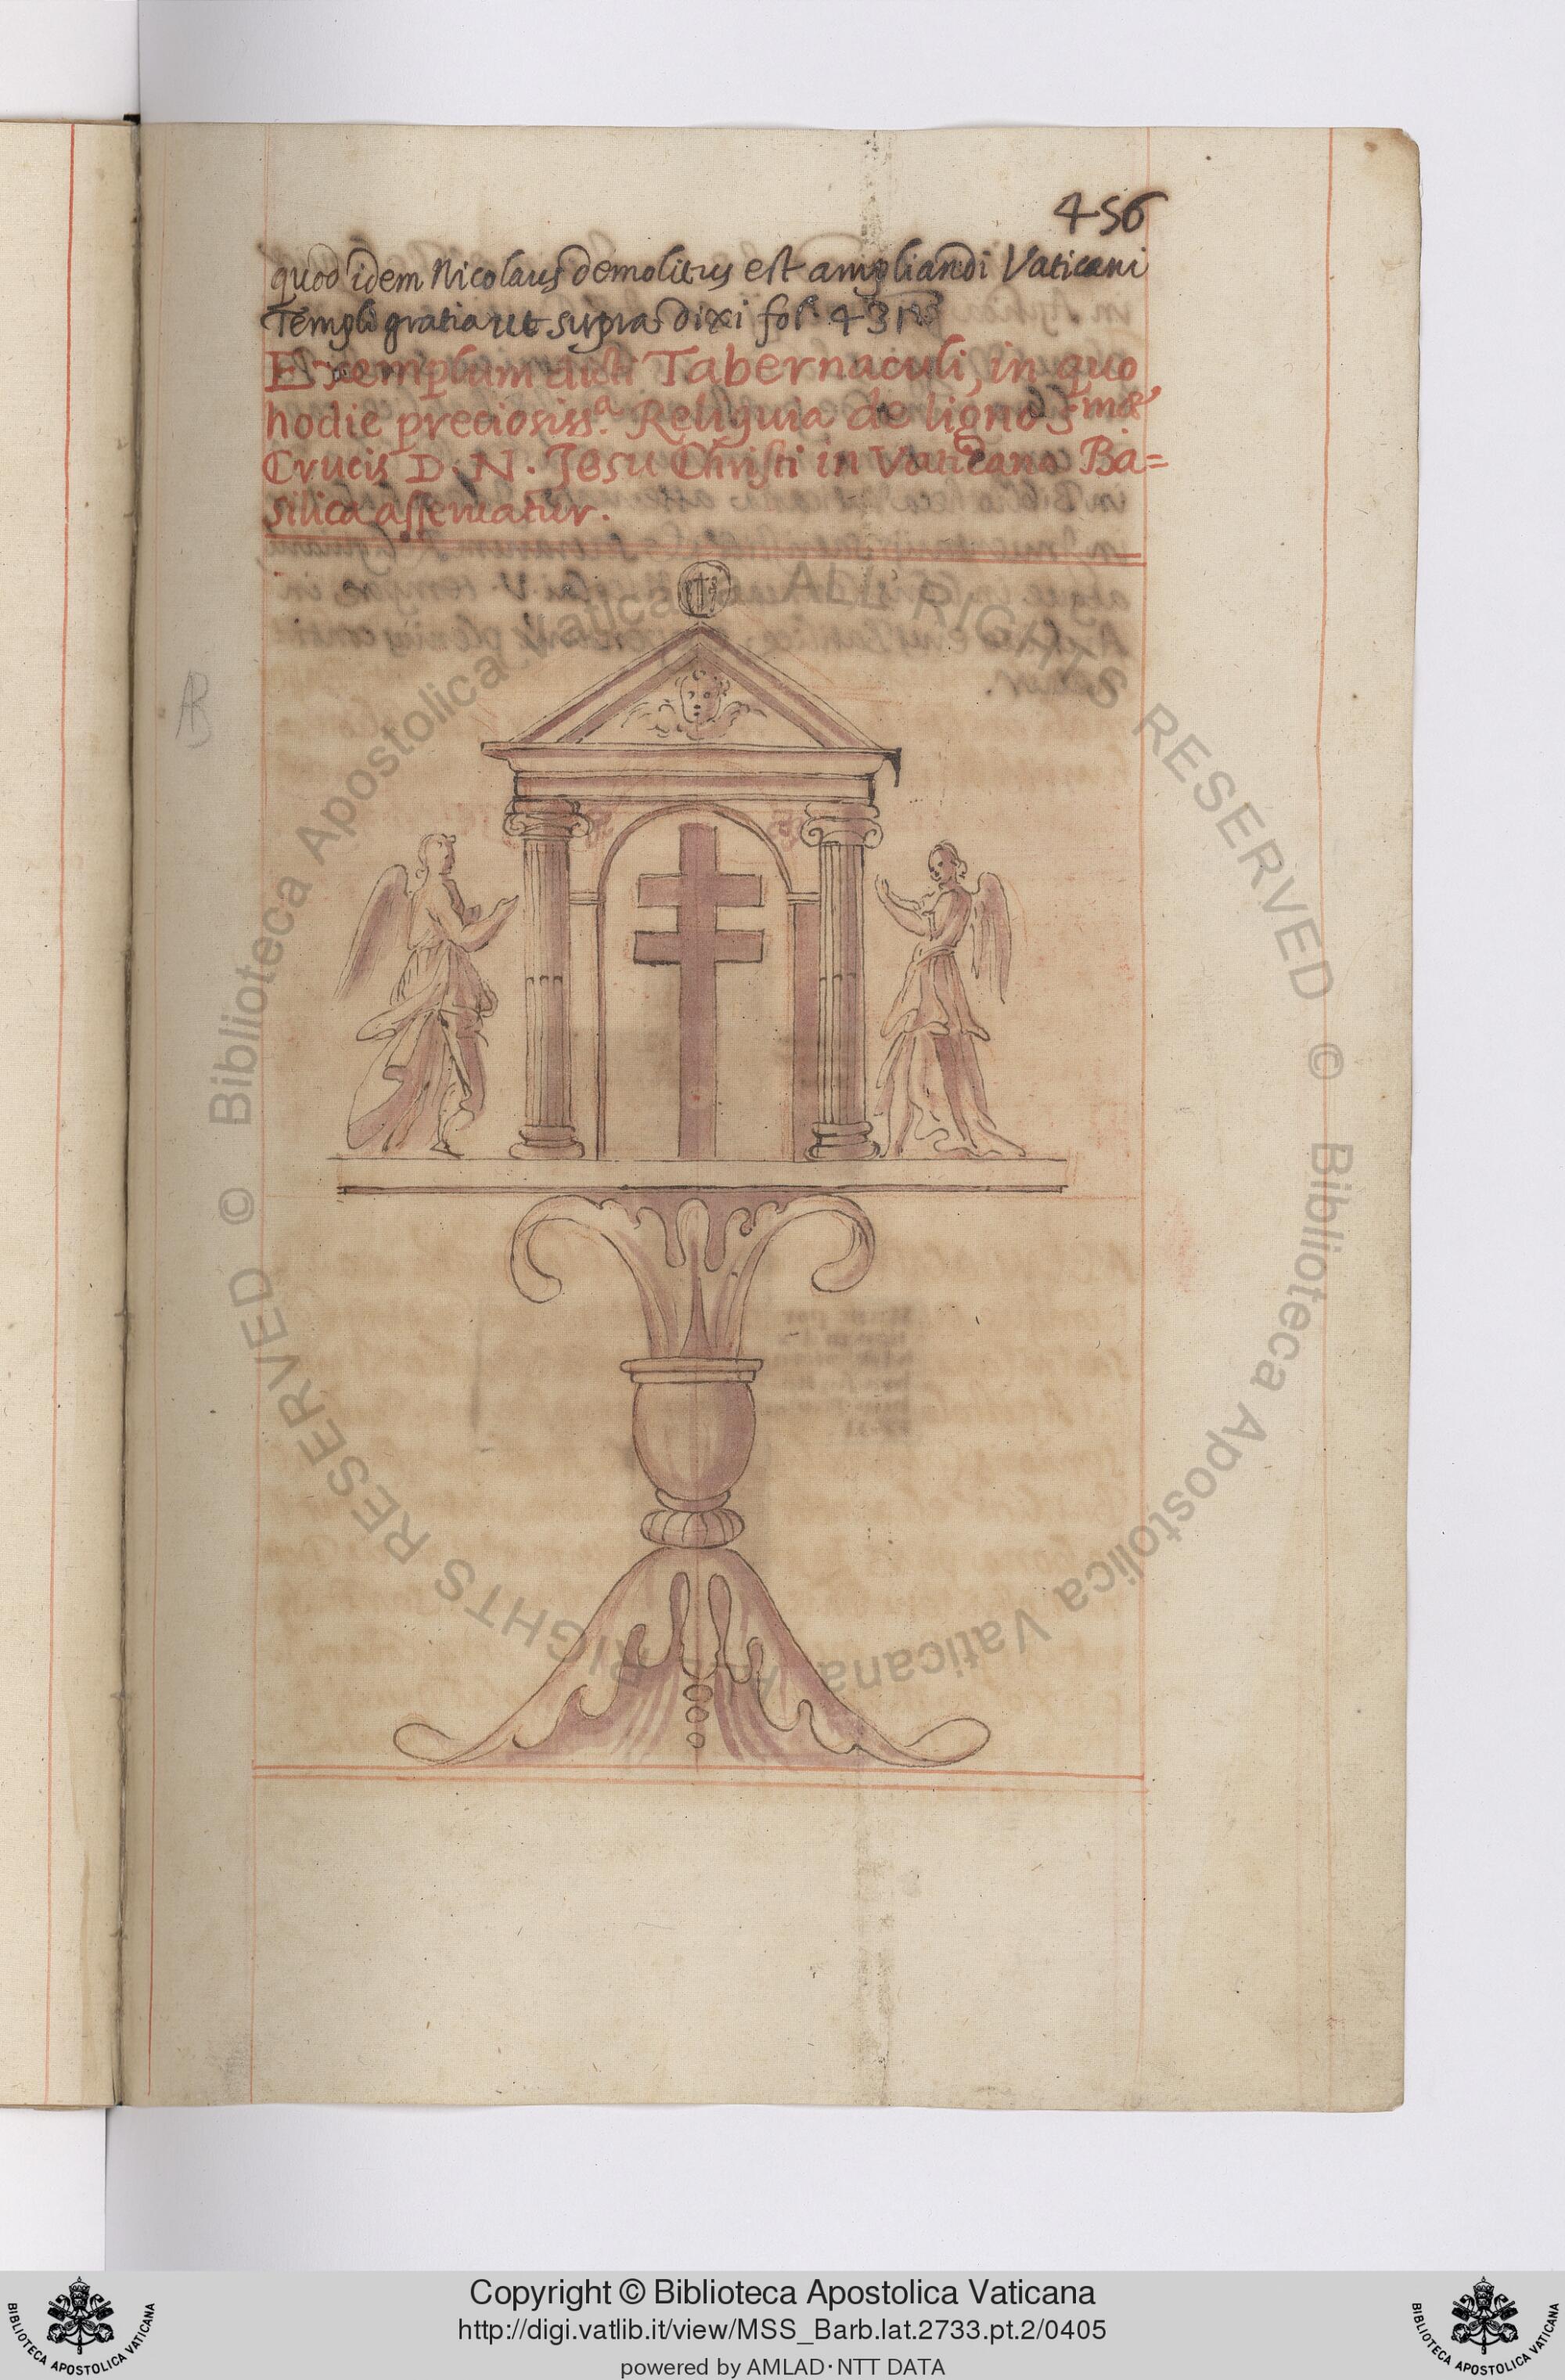 456
quod idem Nicolaus demolitus est ampliandi Vaticani
Templi gratia ut supra dixi fol. 431
Exemplum dicti Tabernaculi, in quo
hodie preciosiss.a Reliquia de ligno S.mæ
Crucis D. N. Jesu Christi in Vaticana Ba=
silica asseruatur.
© Biblioteca Apostolica Vaticana ALL RIGHTS RESERVED
© Biblioteca Apostolica Vaticana ALL RIGHTS RESERVED
Copyright © Biblioteca Apostolica Vaticana
http://digi.vatlib.it/view/MSS_Barb.lat.2733.pt.2/0405
powered by AMLAD·NTT DATA
BIBLIOTECA APOSTOLICA VATICANA
BIBLIOTECA APOSTOLICA VATICANA